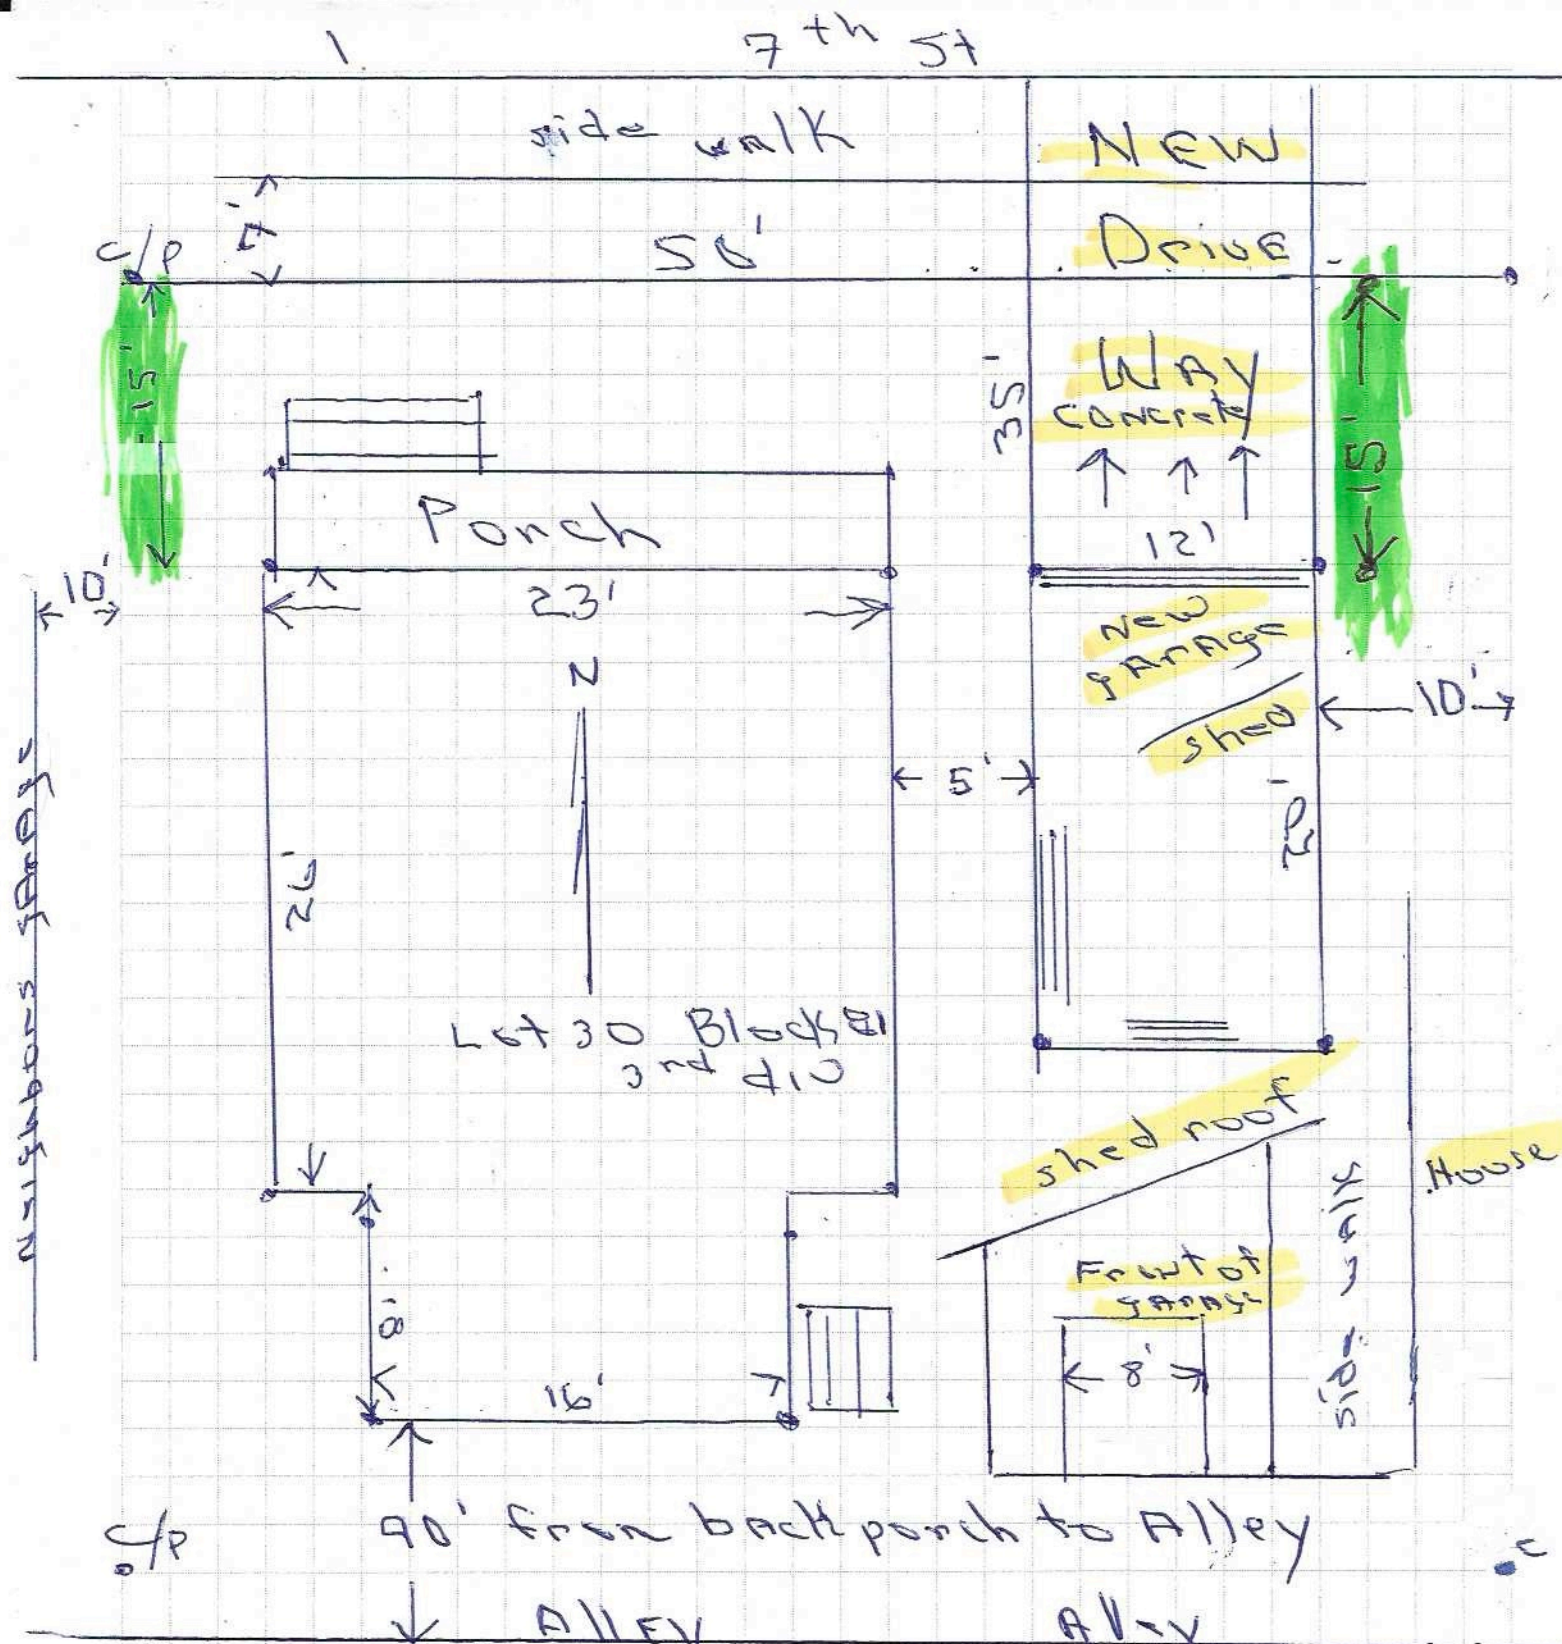 7th St
side walk
NEW
7'
50'
Drive
C/P
15'
35'
WAY
CONCrete
15'
Porch
12'
10'
23'
New
gArAge
shed
10'
N
5'
20'
26'
Neighbors gArAge
Lot 30 Block 81
3rd div
shed roof
House
Front of
gArAge
side walk
8'
8'
16'
C/P
90' from back porch to Alley
C
Alley
Alley